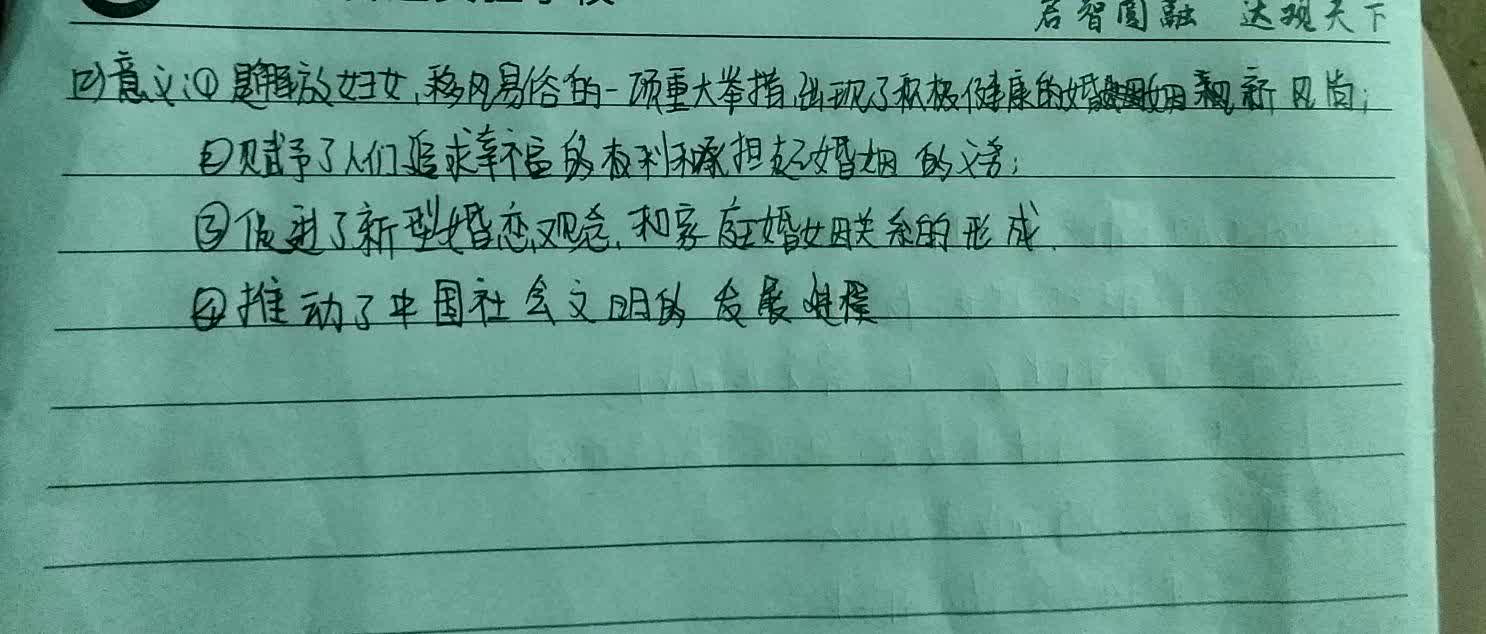 君智圆融 达观天下
(2)意义:①是解放妇女,移风易俗的一项重大举措,出现了积极健康的婚姻新风尚;
②赋予了人们追求幸福的权利和承担起婚姻的义务;
③促进了新型婚恋观念,和家庭婚姻关系的形成.
④推动了中国社会文明的发展进程